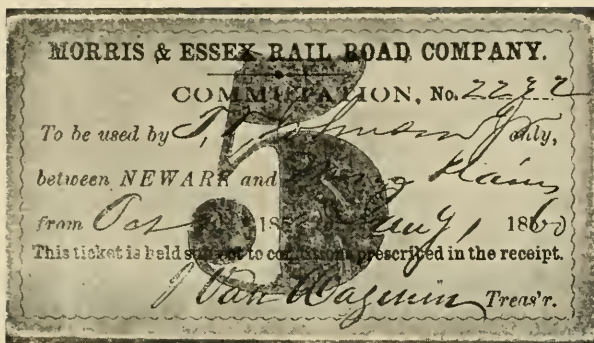 MORRIS & ESSEX RAIL ROAD COMPANY.
5
COMMUTATION, No. 2292
To be used by Johnson Jr only,
between NEWARK and Plains
from Oct 185 186
This ticket is held subject to conditions prescribed in the receipt.
J Van Wagenen Treas'r.